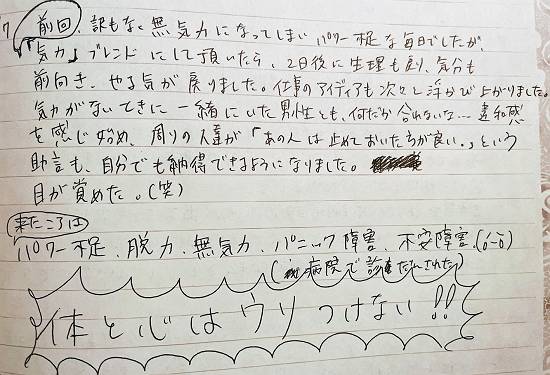 7
前回、訳もなく無気力になってしまいパワー不足な毎日でしたが、
「気力」ブレンドにして頂いたら、2日後に生理も来り、気分も
前向き、やる気が戻りました。仕事のアイディアも次々と浮かび上がりました。
気力がないときに一緒にいた男性とも、何だか合わないな…違和感
を感じ始め、周りの人達が「あの人は止めておいたらが良い。」という
助言も、自分でも納得できるようになりました。
目が覚めた。(笑)
来たころは
パワー不足、脱力、無気力、パニック障害、不安障害。
(病院で診断された)
体と心はウソつけない!!